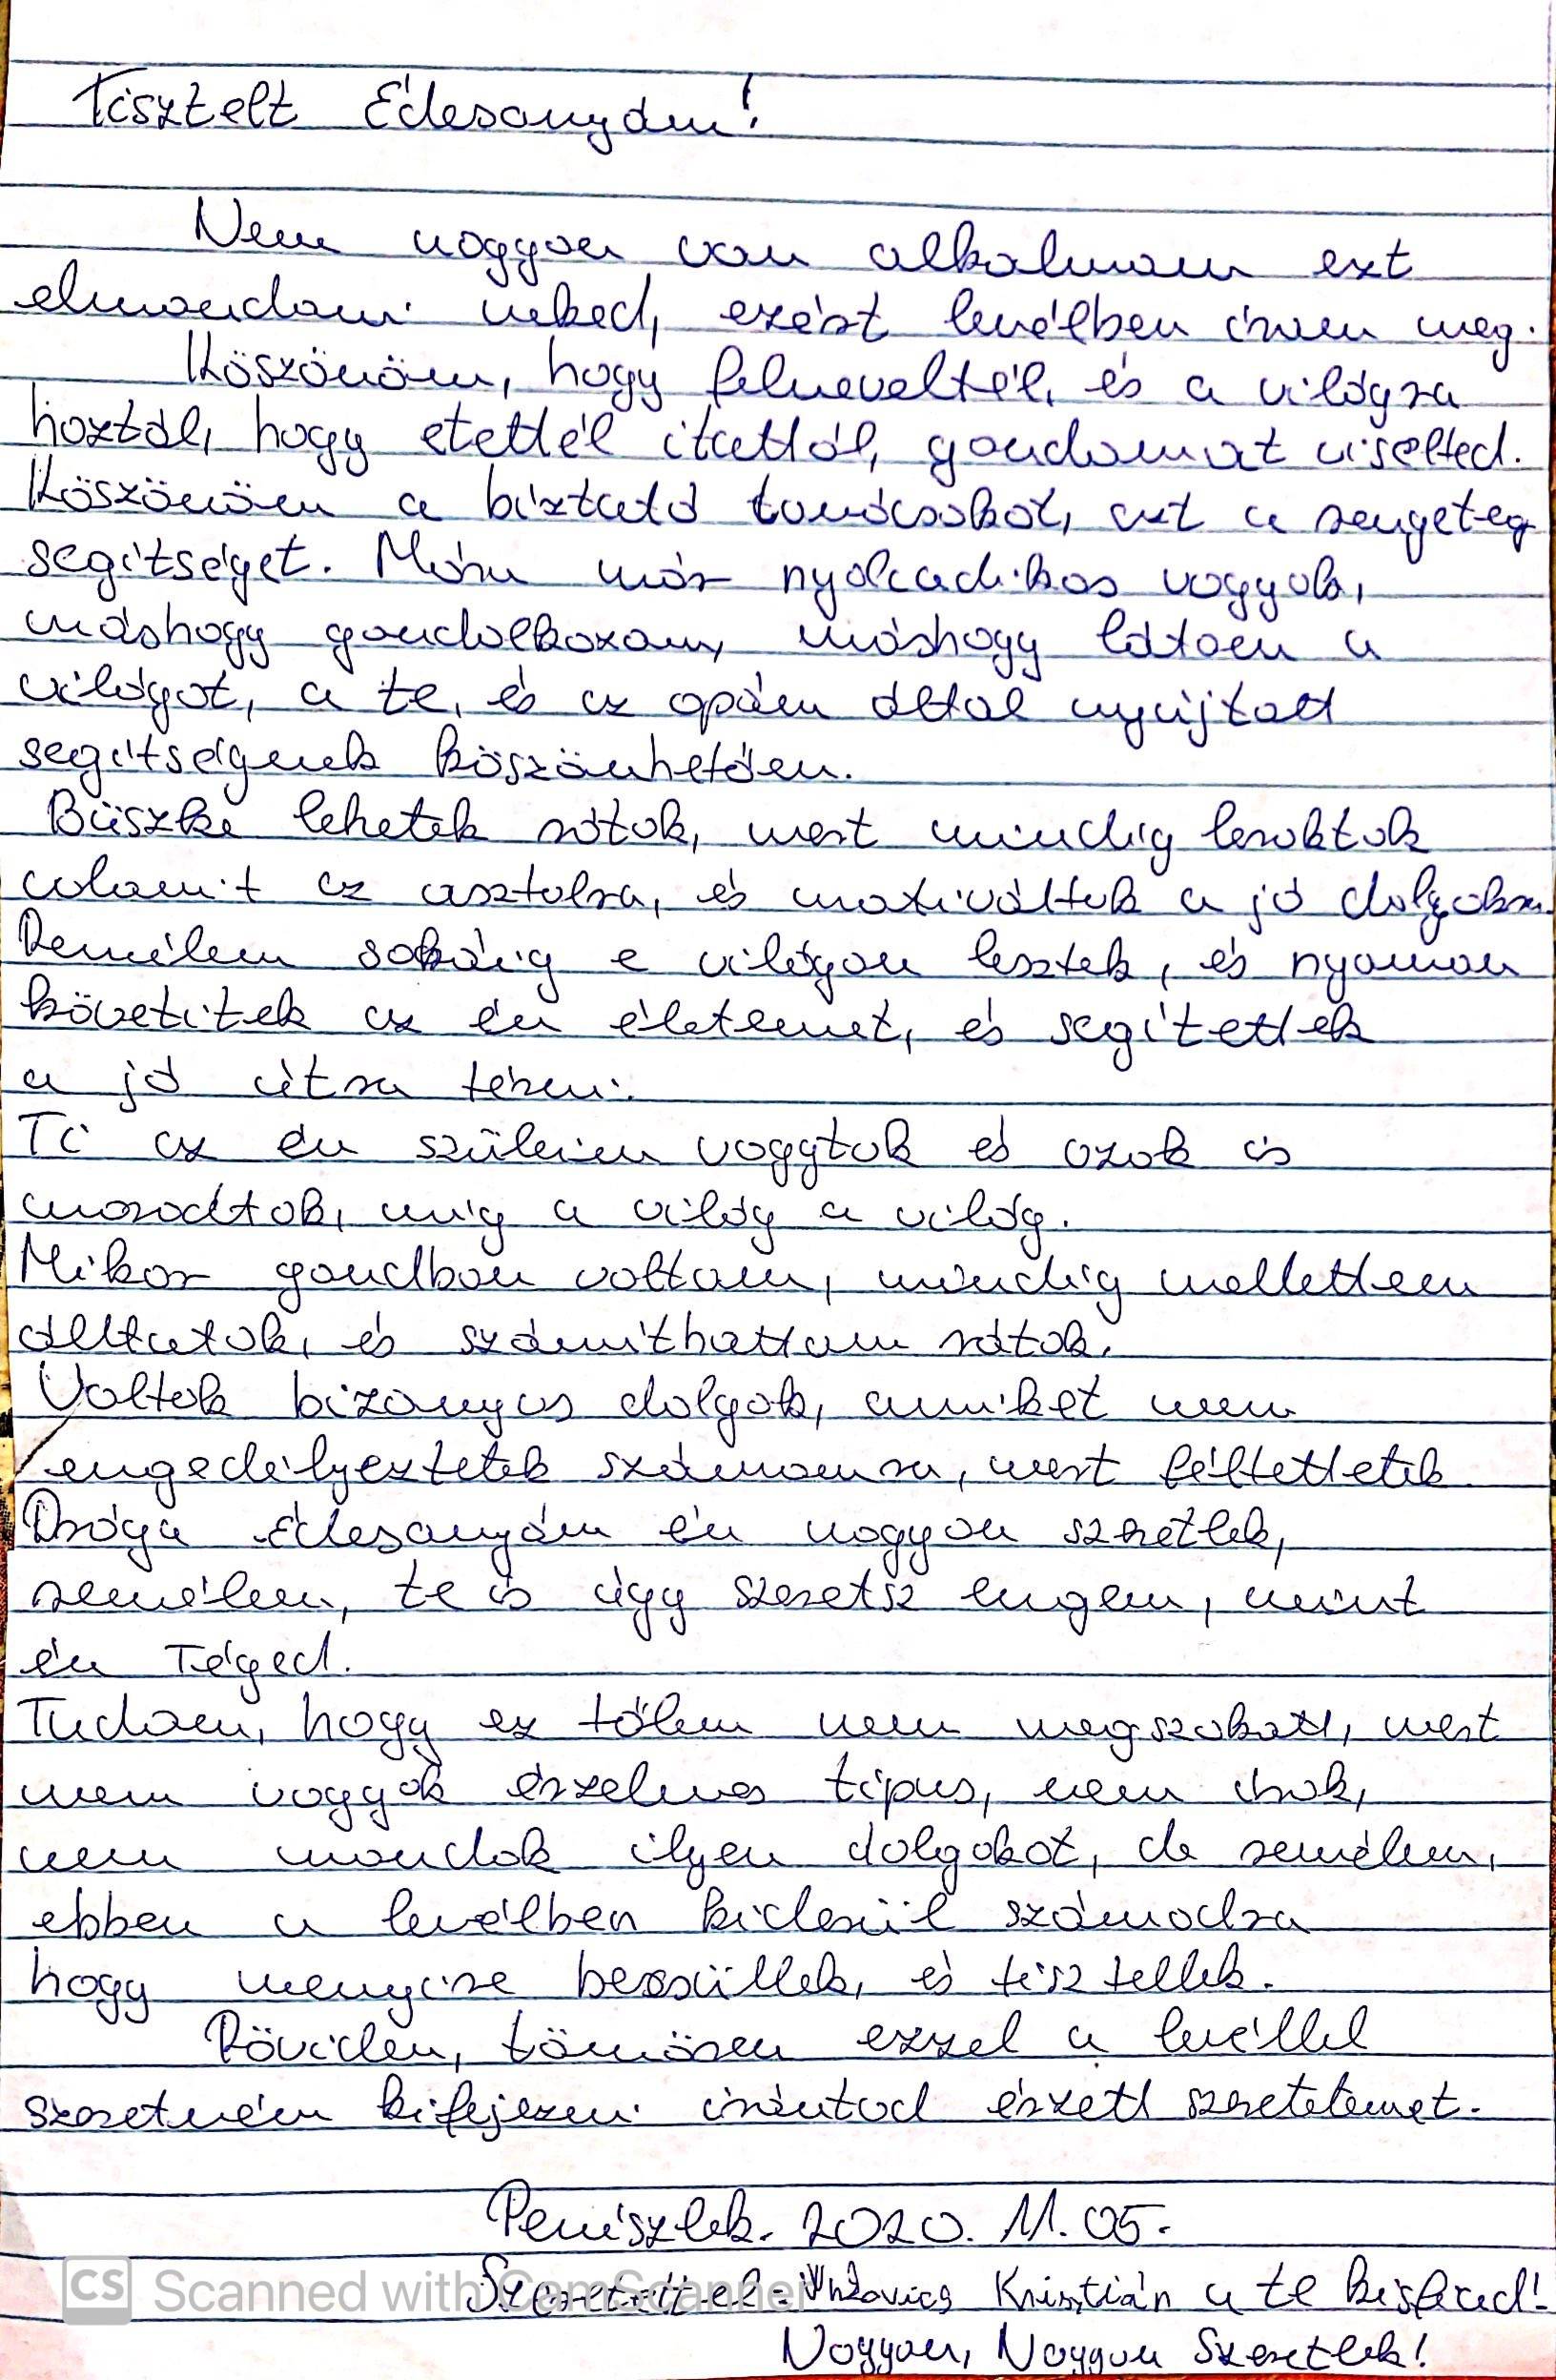 Tisztelt Édesanyám!
Nem nagyon van alkalmam ezt
elmondani neked, ezért levélben írom meg.
Köszönöm, hogy felneveltél, és a világra
hoztál, hogy etettél itattál, gondomat viselted.
Köszönöm a bíztató tanácsokat, azt a rengeteg
segítséget. Mára már nyolcadikos vagyok,
máshogy gondolkozom, máshogy látom a
világot, a te, és az apám által nyújtott
segítségnek köszönhetően.
Büszke lehetek rátok, mert mindig leraktok
valamit az asztalra, és motiváltok a jó dolgokra.
Remélem sokáig e világon lesztek, és nyomon
követitek az én életemet, és segítettek
a jó útra térni.
Ti az én szüleim vagytok és azok is
maradtok, míg a világ a világ.
Mikor gondban voltam, mindig mellettem
álltatok, és számíthattam rátok.
Voltak bizonyos dolgok, amiket nem
engedélyeztetek számomra, mert féltettetek.
Drága Édesanyám én nagyon szeretlek,
remélem, te is úgy szeretsz engem, mint
én Téged.
Tudom, hogy ez tőlem nem megszokott, mert
nem vagyok érzelmes típus, nem írok,
nem mondok ilyen dolgokat, de remélem,
ebben a levélben kiderül számodra
hogy menyire becsüllek, és tisztellek.
Röviden, tömören ezzel a levéllel
szeretném kifejezni irántad érzett szeretetemet.
Penészlek. 2020. 11. 05.
Szeretettel: Krisztián a te kisfiad!
Nagyon, Nagyon Szeretlek!
CS Scanned with CamScanner